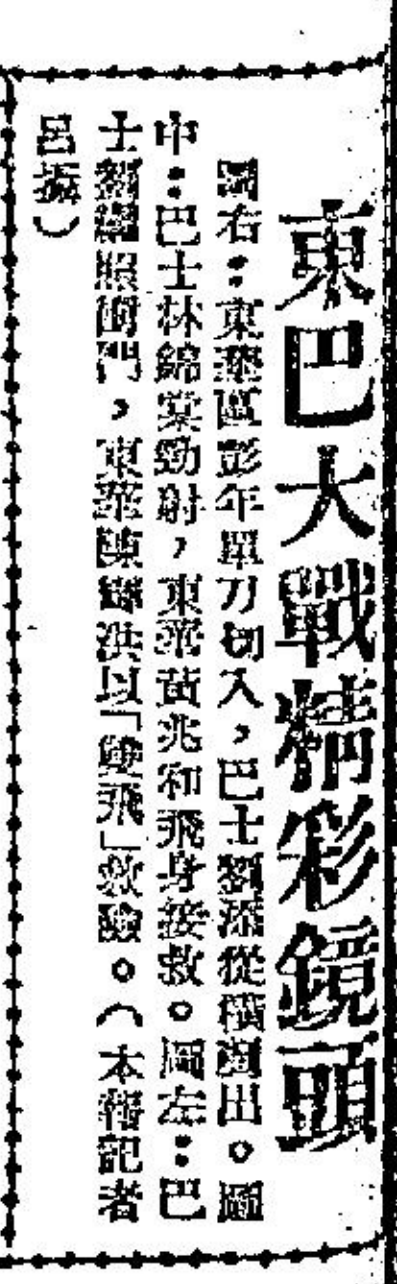 東巴大戰精彩鏡頭
圖右：東華區彭年單刀切入，巴士劉添從橫剷出。圖
中：巴士林錦棠勁射，東華黃兆和飛身接救。圖左：巴
士劉繼照衝門，東華陳鴻洪以「雙飛」救險。（本報記者
呂振）